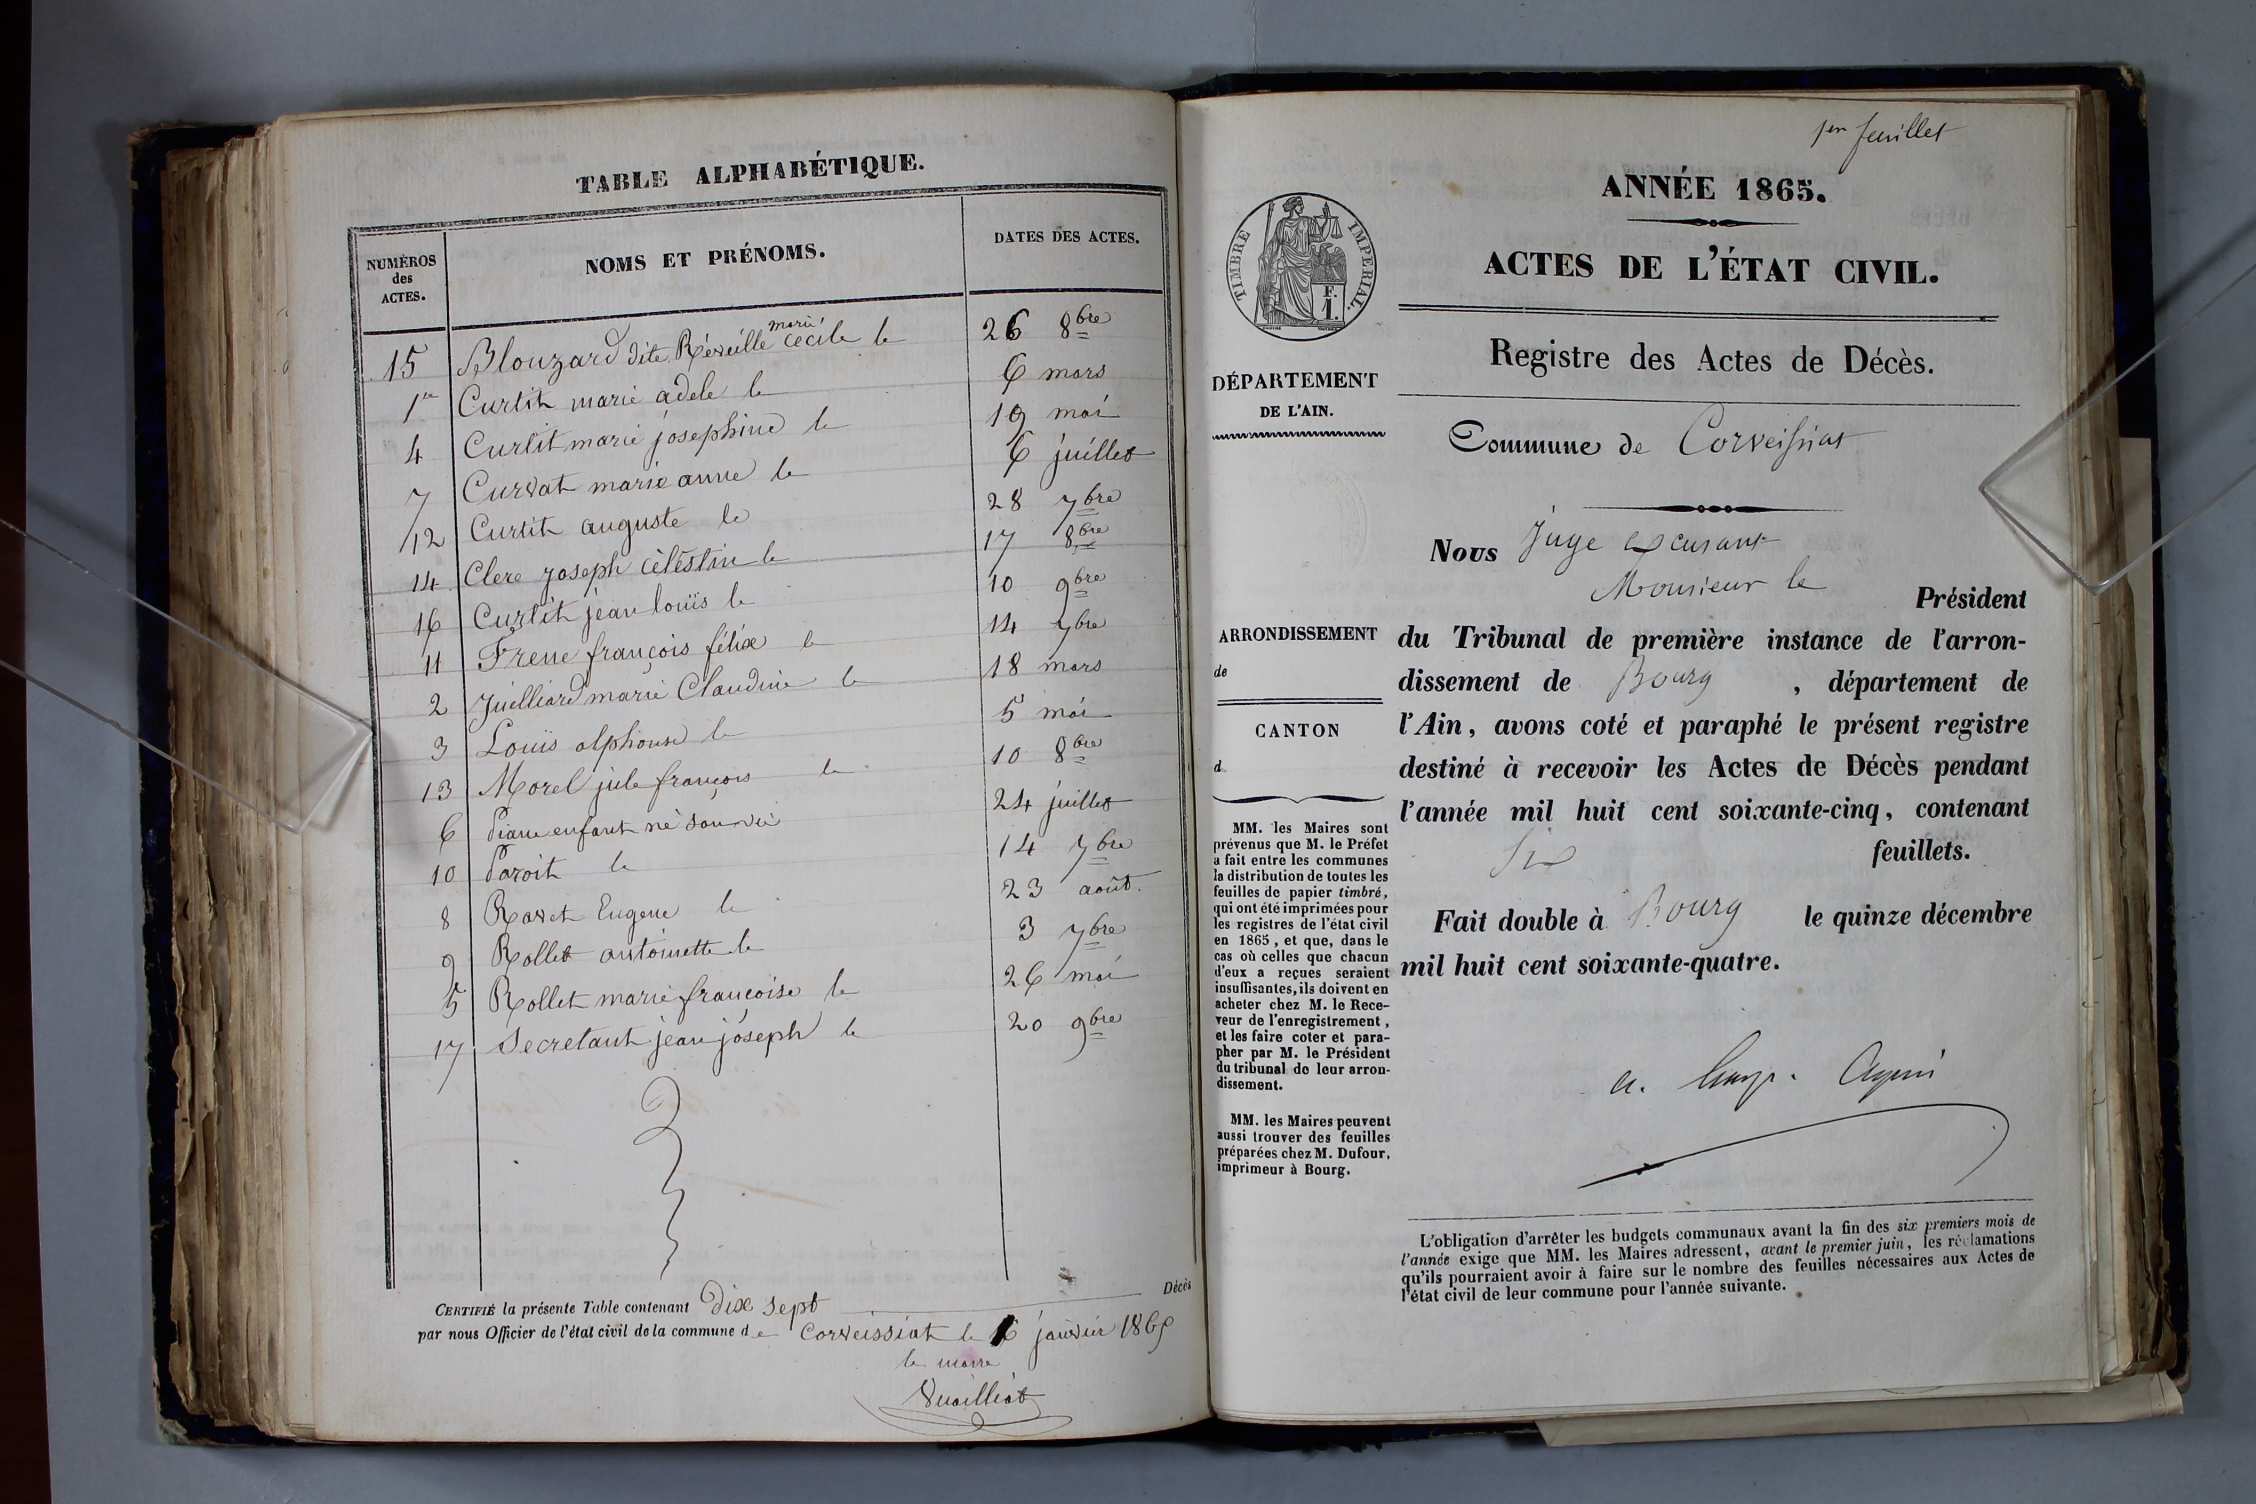 TABLE ALPHABÉTIQUE.
NUMÉROS des ACTES. NOMS ET PRÉNOMS. DATES DES ACTES.
15 Blouzard dite Réveille marié cécile le 26 8bre
1er Curtit marie adele le 6 mars
4 Curtit marie joséphine le 19 mai
7 Curvat marie anne le 6 juillet
12 Curtit auguste le 28 7bre
14 Clere joseph célèstin le 17 8bre
16 Curtit jean louis le 10 9bre
11 Frene françois félix le 14 7bre
2 Juilliard marie Claudine le 18 mars
3 Louis alphonse le 5 mai
13 Morel jule françois le 10 8bre
6 enfant né sans vie 24 juillet
10 Paroit le 14 7bre
8 Ravet Eugene le 23 août.
9 Rollet antoinette le 3 7bre
5 Rollet marie françoise le 26 mai
17 Secretant jean joseph le 20 9bre
CERTIFIÉ la présente Table contenant dix sept Décès
par nous Officier de l'état civil de la commune de Corveissiat le janvier 186
le maire
Vuailliat
1er feuillet
ANNÉE 1865.
ACTES DE L'ÉTAT CIVIL.
Registre des Actes de Décès.
Commune de Corveissiat
TIMBRE IMPERIAL.
F.
1.
DÉPARTEMENT
DE L'AIN.
ARRONDISSEMENT
de
CANTON
d
MM. les Maires sont
prévenus que M. le Préfet
a fait entre les communes
la distribution de toutes les
feuilles de papier timbré,
qui ont été imprimées pour
les registres de l'état civil
en 1865, et que, dans le
cas où celles que chacun
d'eux a reçues seraient
insuffisantes, ils doivent en
acheter chez M. le Rece-
veur de l'enregistrement,
et les faire coter et para-
pher par M. le Président
du tribunal de leur arron-
dissement.
MM. les Maires peuvent
aussi trouver des feuilles
préparées chez M. Dufour,
imprimeur à Bourg.
Nous Juge excusant
Monsieur le Président
du Tribunal de première instance de l'arron-
dissement de Bourg, département de
l'Ain, avons coté et paraphé le présent registre
destiné à recevoir les Actes de Décès pendant
l'année mil huit cent soixante-cinq, contenant
Six feuillets.
Fait double à Bourg le quinze décembre
mil huit cent soixante-quatre.
L'obligation d'arrêter les budgets communaux avant la fin des six premiers mois de
l'année exige que MM. les Maires adressent, avant le premier juin, les réclamations
qu'ils pourraient avoir à faire sur le nombre des feuilles nécessaires aux Actes de
l'état civil de leur commune pour l'année suivante.